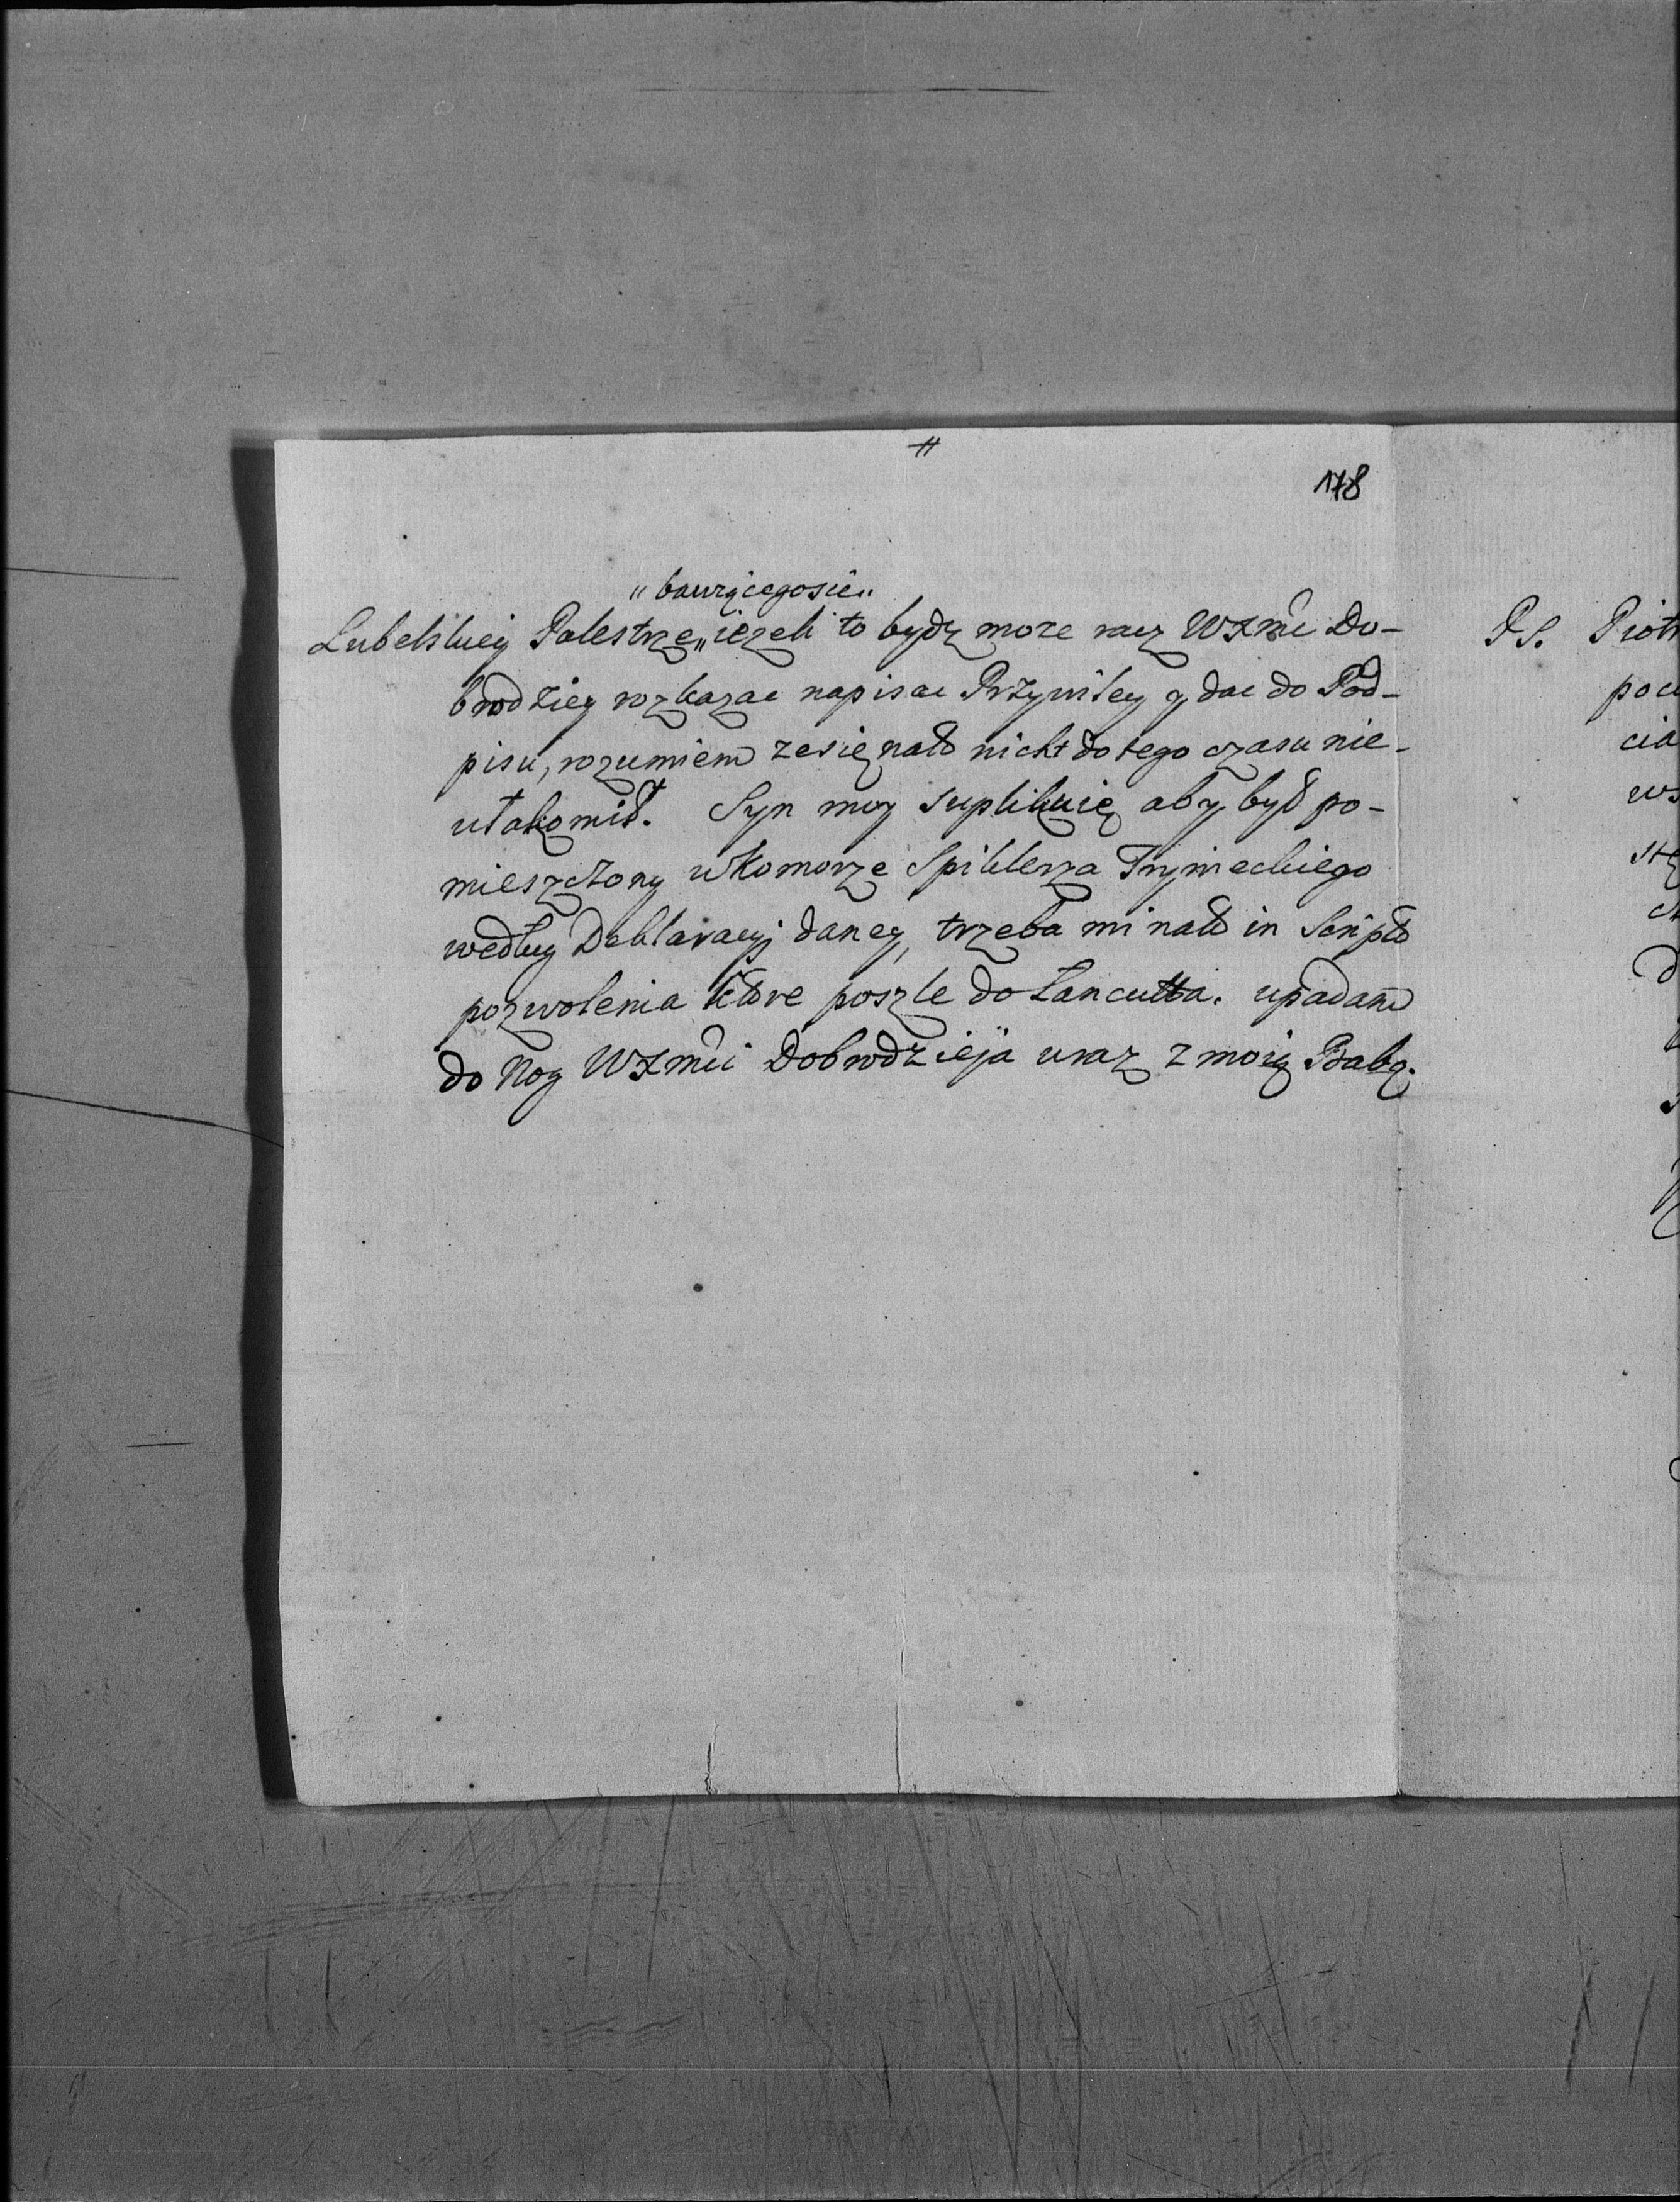 178
„bawiącegosie„
Lubelskiey Palestrze„ iezeli to bydz moze racz WJmć Do-
brodziey rozkazac napisac Przywiley y dac do Pod-
pisu, rozumiem zesię nato nicht do tego czasu nie-
ułakomił. Syn moy suplikuię aby był po-
mieszczony w Komorze Spiklerza Trynieckiego
według Deklaracyj daney, trzeba mi nato in Scripto
pozwolenia ktore poszle do Lancutta. upadam
do Nog WJmći Dobrodzieja wraz z moią Babą.
PS. Piotr
pocz
cia